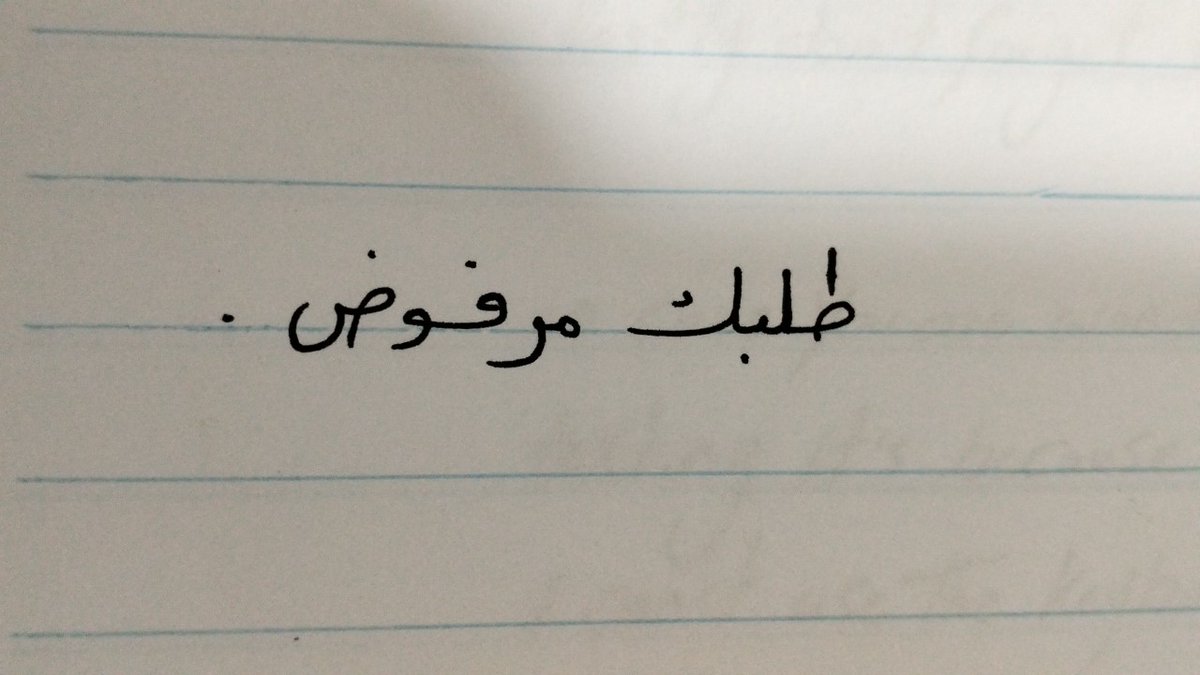 طلبك مرفوض .